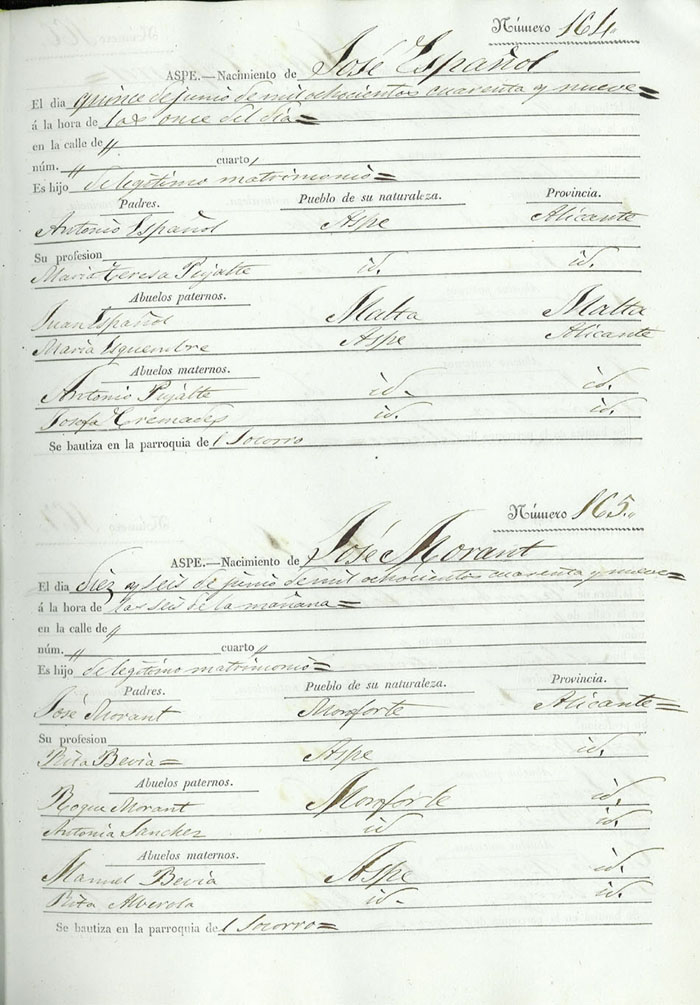 Número 164.
ASPE.—Nacimiento de José Español
El dia quince de junio de mil ochocientos cuarenta y nueve=
á la hora de las once del dia=
en la calle de "
núm. " cuarto "
Es hijo de legítimo matrimonio=
Padres. Pueblo de su naturaleza. Provincia.
Antonio Español Aspe Alicante
Su profesion
Maria Teresa Pujalte id. id.
Abuelos paternos.
Juan Español Malta Malta
Maria Esquembre Aspe Alicante
Abuelos maternos.
Antonio Pujalte id. id.
Josefa Cremades id. id.
Se bautiza en la parroquia del Socorro
Número 165.
ASPE.—Nacimiento de José Morant
El dia diez y seis de junio de mil ochocientos cuarenta y nueve=
á la hora de las seis de la mañana=
en la calle de "
núm. " cuarto "
Es hijo de legítimo matrimonio=
Padres. Pueblo de su naturaleza. Provincia.
José Morant Monforte Alicante=
Su profesion
Rita Bevia= Aspe id.
Abuelos paternos.
Roque Morant Monforte id.
Antonia Sanchez id id.
Abuelos maternos.
Manuel Bevia Aspe id.
Rita Alverola id. id.
Se bautiza en la parroquia del Socorro=